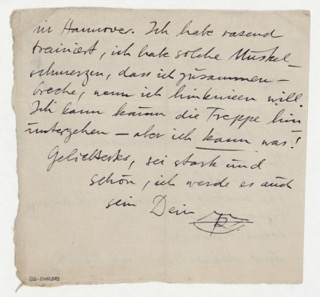 in Hannover. Ich habe rasend
trainiert, ich habe solche Muskel-
schmerzen, dass ich zusammen-
breche, wenn ich hinknien will.
Ich kann kaum die Treppe hin
untergehen – aber ich kann was!
Geliebtestes, sei stark und
schön, ich werde es auch
sein Dein